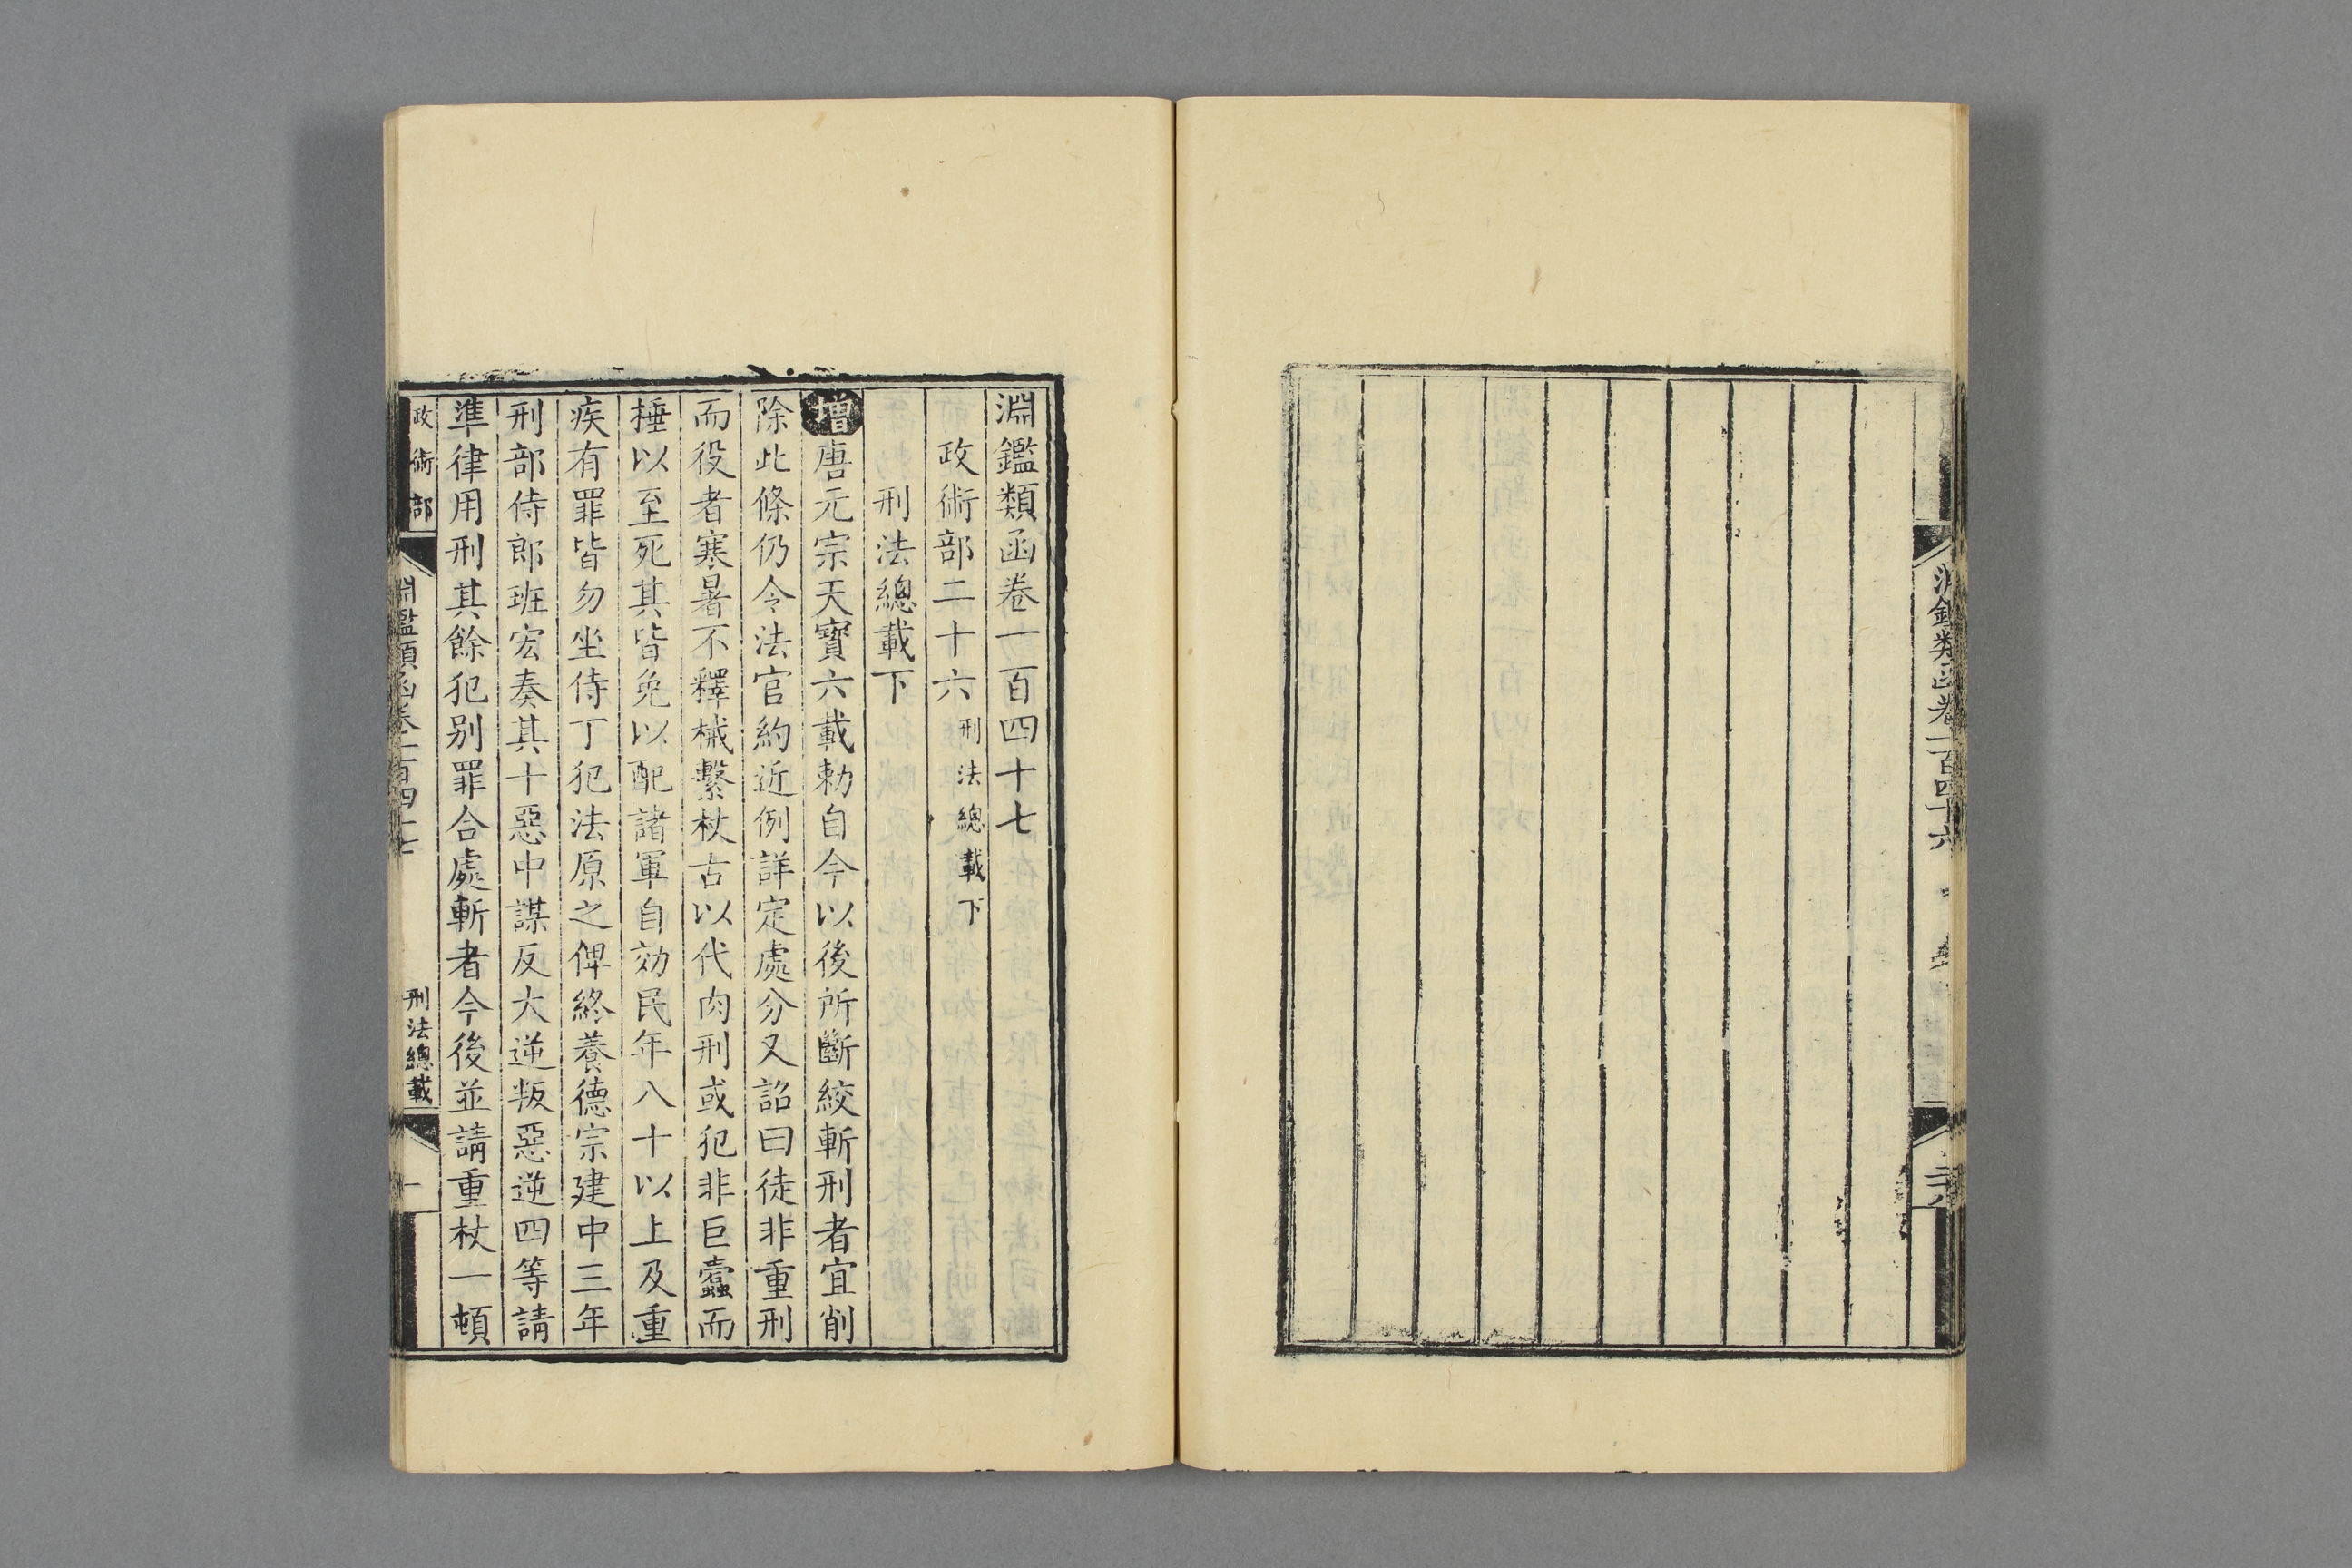 淵鑑類函卷一百四十六
淵鑑類函卷一百四十七
政術部二十六 刑法總載下
刑法總載下
增唐元宗天寶六載勅自今以後所斷絞斬刑者宜削
除此條仍令法官約近例詳定處分又詔曰徒非重刑
而役者寒暑不釋械繫杖古以代肉刑或犯非巨蠹而
捶以至死其皆免以配諸軍自効民年八十以上及重
疾有罪皆勿坐侍丁犯法原之俾終養德宗建中三年
刑部侍郎班宏奏其十惡中謀反大逆叛惡逆四等請
準律用刑其餘犯别罪合處斬者今後並請重杖一頓
政術部
淵鑑類函卷一百四十七
刑法總載
一